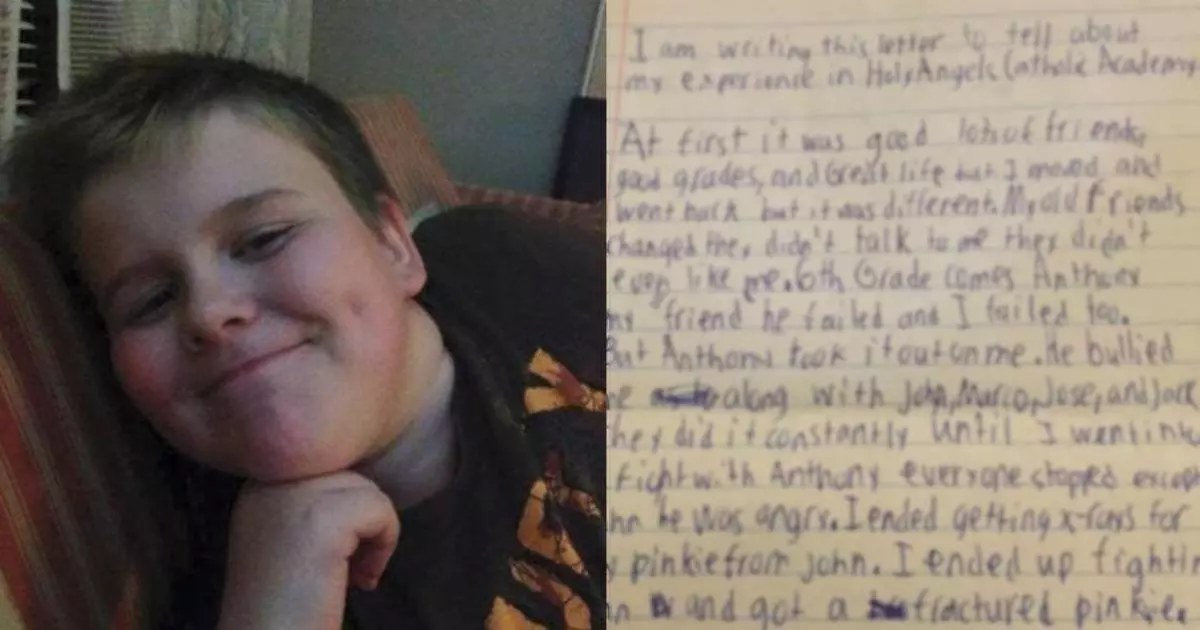 I am writing this letter to tell about
my experience in Holy Angels Catholic Academy
At first it was good lots of friends,
good grades, and Great life but I moved and
went back but it was different. My old friends
changed they didn't talk to me they didn't
even like me. 6th Grade comes Anthony
my friend he failed and I failed too.
But Anthony took it out on me. He bullied
me along with John, Marco, Jose, and Jack
they did it constantly until I went into
fight with Anthony everyone stopped except
he was angry. I ended getting x-rays for
pinkie from john. I ended up fightin
and got a fractured pinkie.